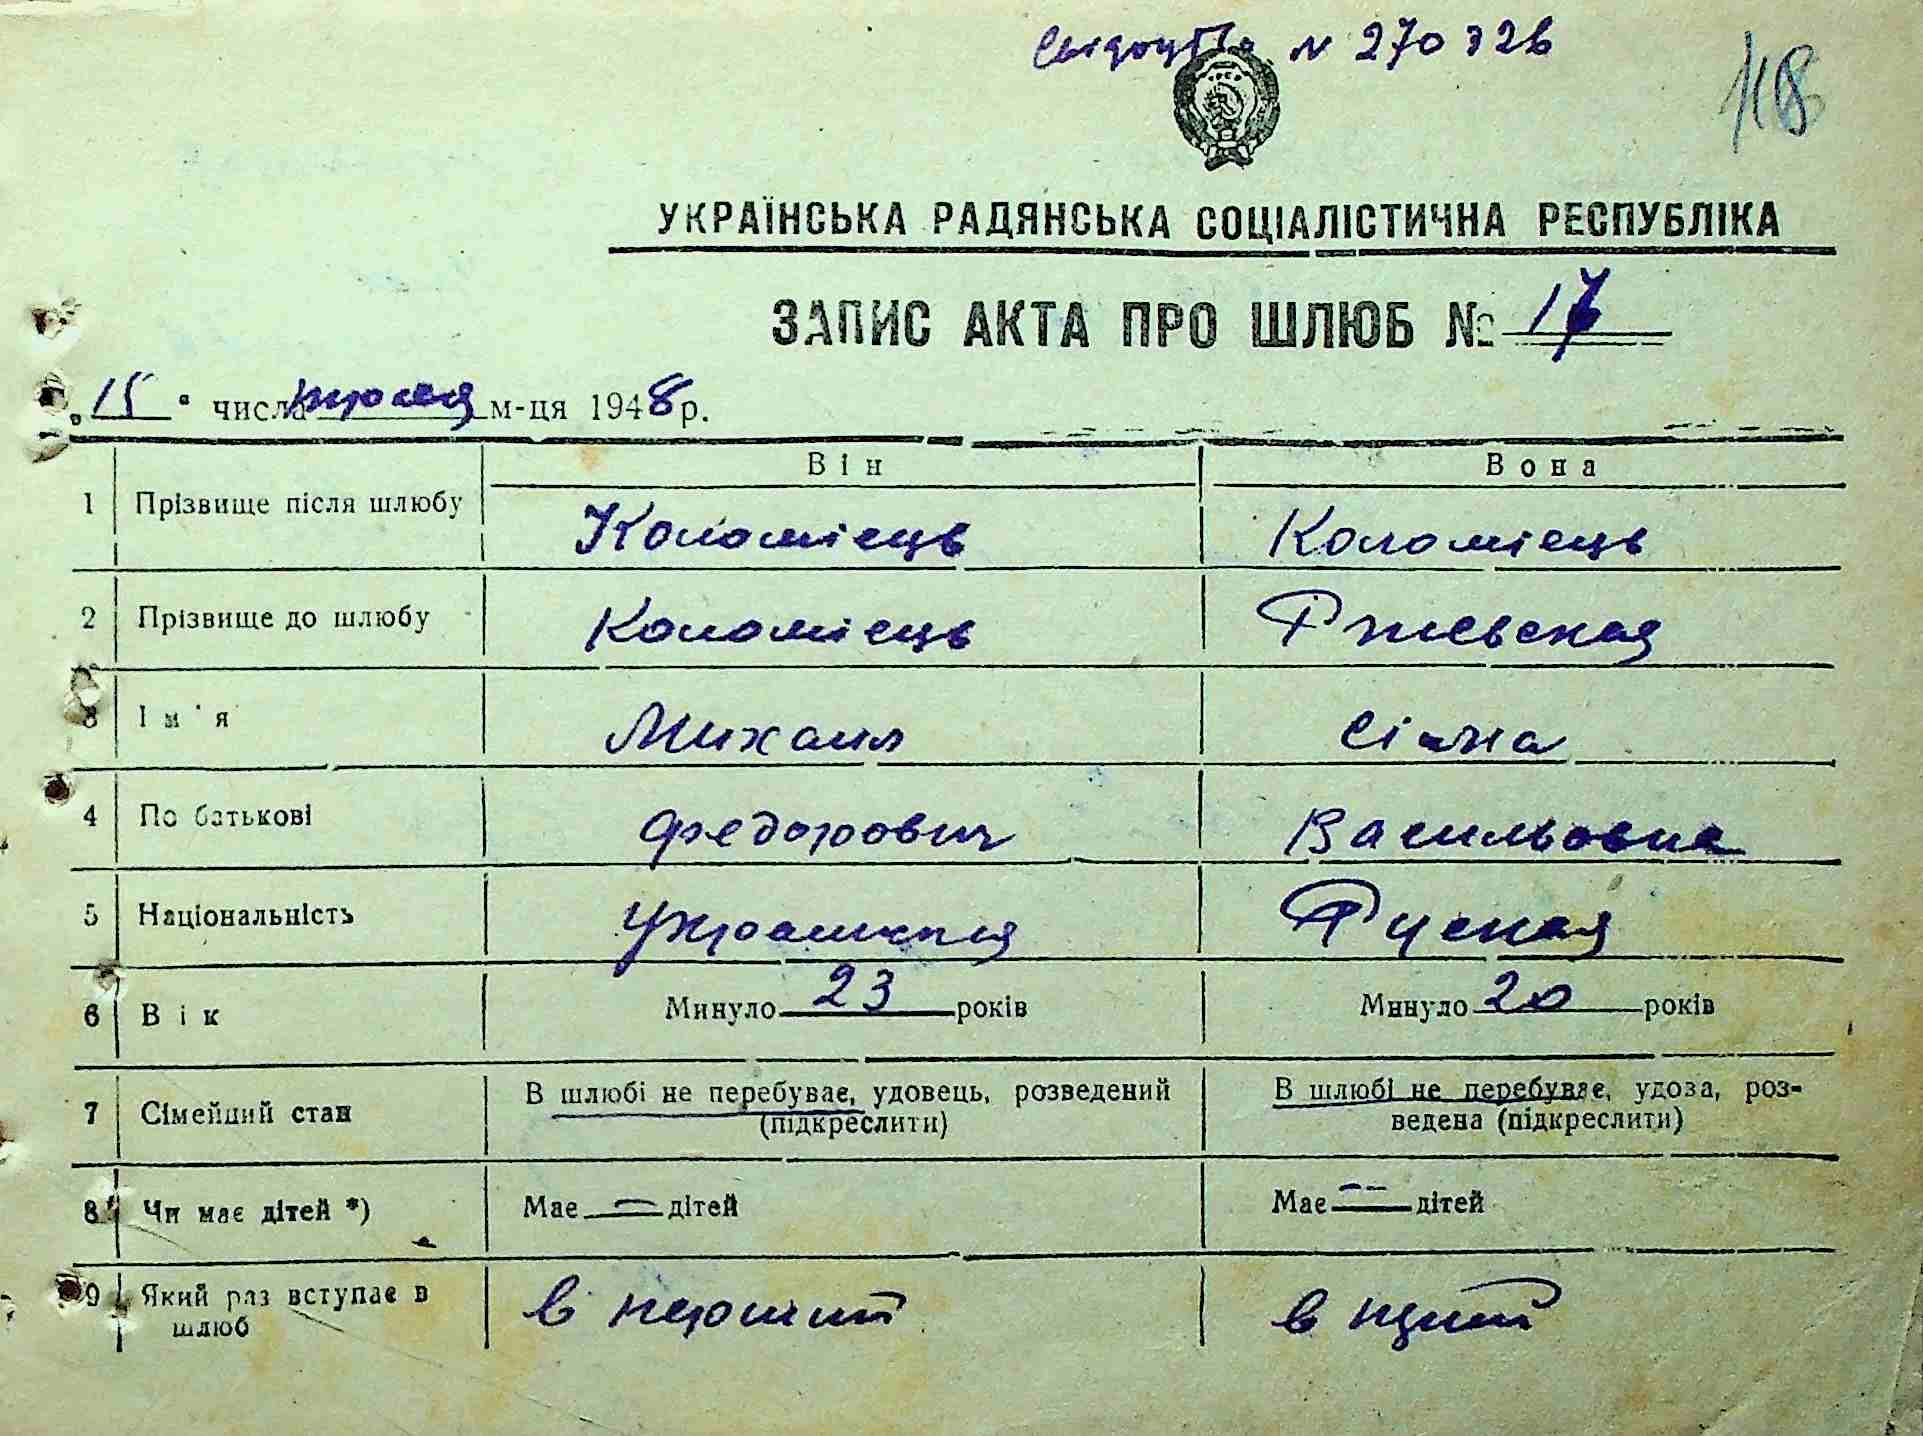 N 270326
118
УРСР
УКРАЇНСЬКА РАДЯНСЬКА СОЦІАЛІСТИЧНА РЕСПУБЛІКА
ЗАПИС АКТА ПРО ШЛЮБ № 17
„15“ числа м-ця 1948 р.
Він Вона
1 Прізвище після шлюбу Коломієць Коломієць
2 Прізвище до шлюбу Коломієць Ржевская
3 Ім'я Михаил
4 По батькові Федорович Васильовна
5 Національність Руская
6 Вік Минуло 23 років Минуло 20 років
7 Сімейний стан В шлюбі не перебуває, удовець, розведений (підкреслити) В шлюбі не перебуває, удова, роз-
ведена (підкреслити)
8 Чи має дітей *) Має — дітей Має — дітей
9 Який раз вступає в шлюб в перший в